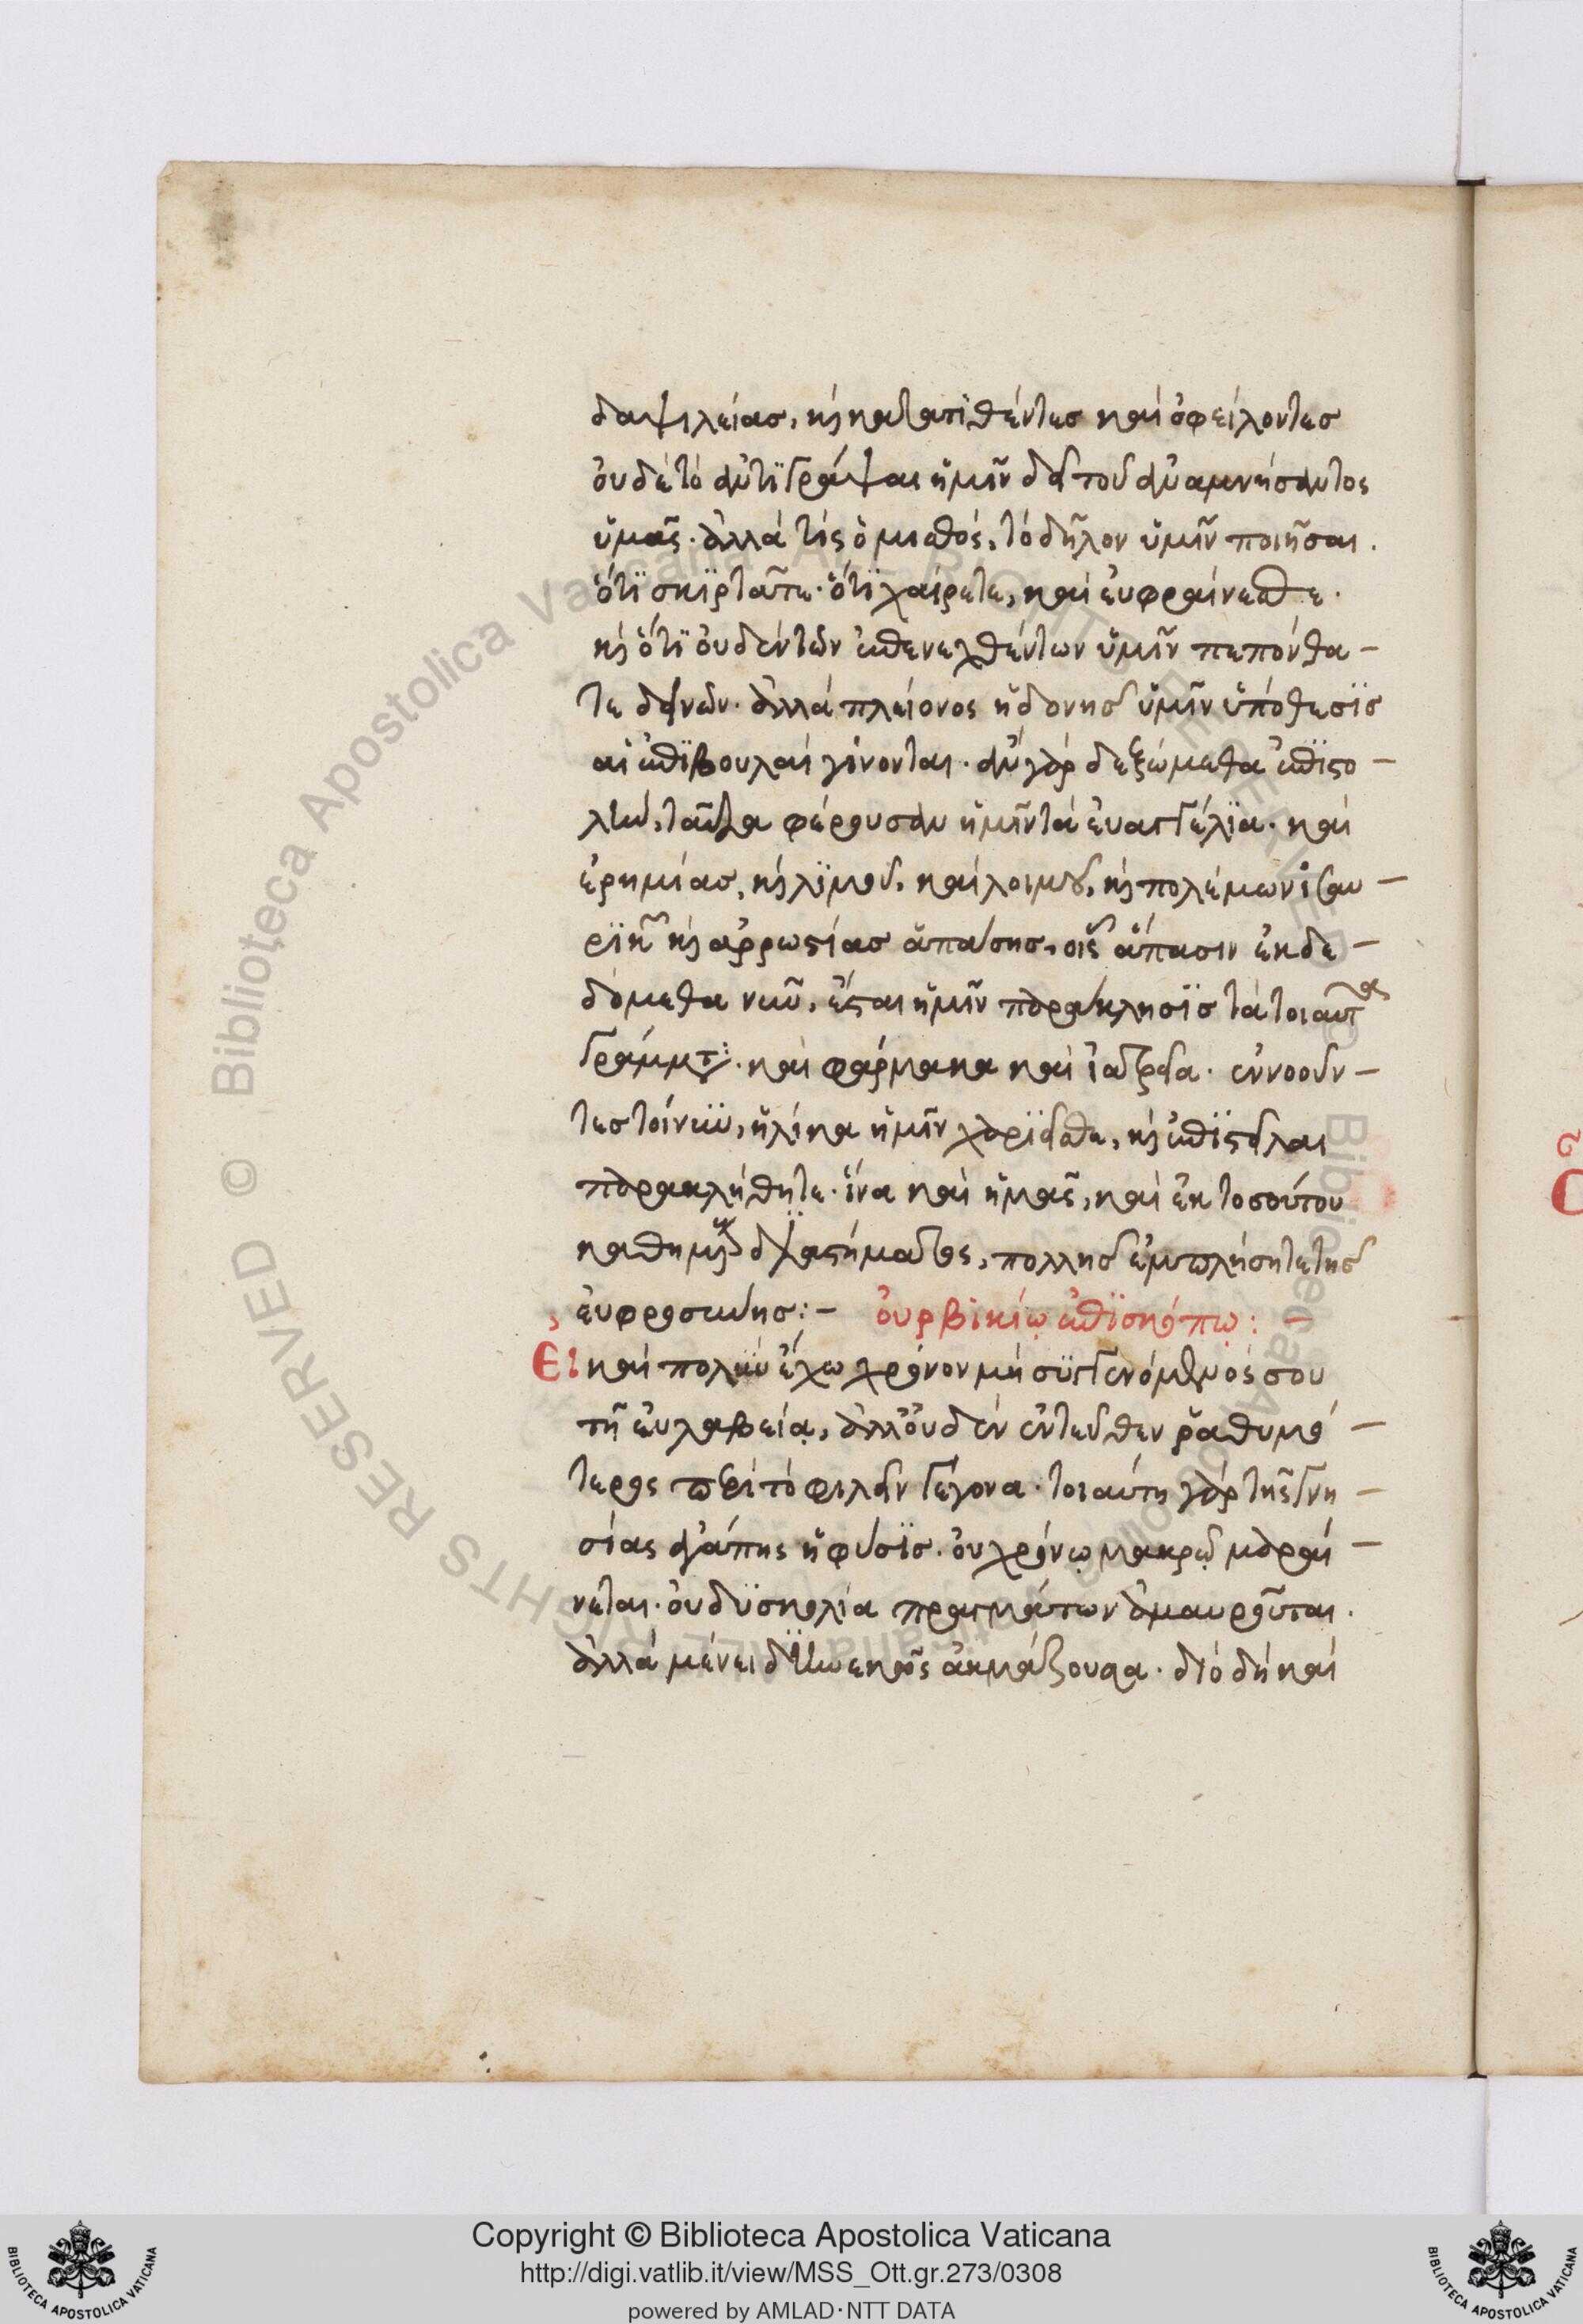 δαψιλείας, κὶ κατατιθέντες καὶ ὀφείλοντες
ὀυδὲ τὸ ἀντϊγράψαι ἡμῖν δεῖ τοῦ ἀναμνήσαντος
ὑμᾶς. ἀλλὰ τίς ὁ μισθός, τὸ δῆλον ἡμῖν ποιῆσαι.
ὅτϊ σκϊρτᾶτε. ὅτϊ χαίρετε, καὶ ἐυφραίνεσθε.
κὶ ὅτϊ ὀυδὲν τῶν ἐπενεχθέντων ὑμῖν πεπόνθα –
τε δεινῶν. ἀλλὰ πλείονος ἡδονῆς ὑμῖν ὑπόθεσϊς
αἱ ἐπϊβουλαὶ γίνονται. ἂν γὰρ δεξώμεθα ἐπϊστο –
λὴν, ταῦτα φέρουσαν ἡμῖν τὰ ἐυαγγέλϊα. καὶ
ἐρημίας, κὶ λϊμοῦ, καὶ λοιμοῦ, κὶ πολέμων ἰσαυ –
ρϊκῶν κὶ ἀρρωστίας ἁπάσης, οἷς ἅπασιν ἐκδε –
δόμεθα νῦν, ἔσται ἡμῖν παράκλησϊς τὰ τοιαῦτα
γράμματα. καὶ φάρμακα καὶ ἰατρεῖα. ἐννοοῦν –
τες τοίνυν, ἡλίκα ἡμῖν χαρϊεῖσθε, κὶ ἐπϊστεῖλαι
παρακλήθητε. ἵνα καὶ ἡμᾶς, καὶ ἐκ τοσούτου
καθημένους διαστήματος, πολλῆς ἐμπλήσητε τῆς
ἐυφροσύνης:– ὀυρβικίῳ ἐπϊσκόπῳ: –
Εἰ καὶ πολὺν ἔχω χρόνον μὴ συγγενόμενός σου
τῇ ἐυλαβείᾳ, ἀλλ' ὀυδὲν ἐντεῦθεν ῥαθυμό –
τερος περὶ τὸ φιλεῖν γέγονα. τοιαύτη γὰρ τῆς γνη –
σίας ἀγάπης ἡ φύσϊς. ὀυ χρόνῳ μακρῷ μαραί –
νεται. ὀυ δϋσκολία πραγμάτων ἀμαυροῦται.
ἀλλὰ μένει διηνεκῶς ἀκμάζουσα. διὸ δὴ καὶ
Copyright © Biblioteca Apostolica Vaticana
http://digi.vatlib.it/view/MSS_Ott.gr.273/0308
powered by AMLAD·NTT DATA